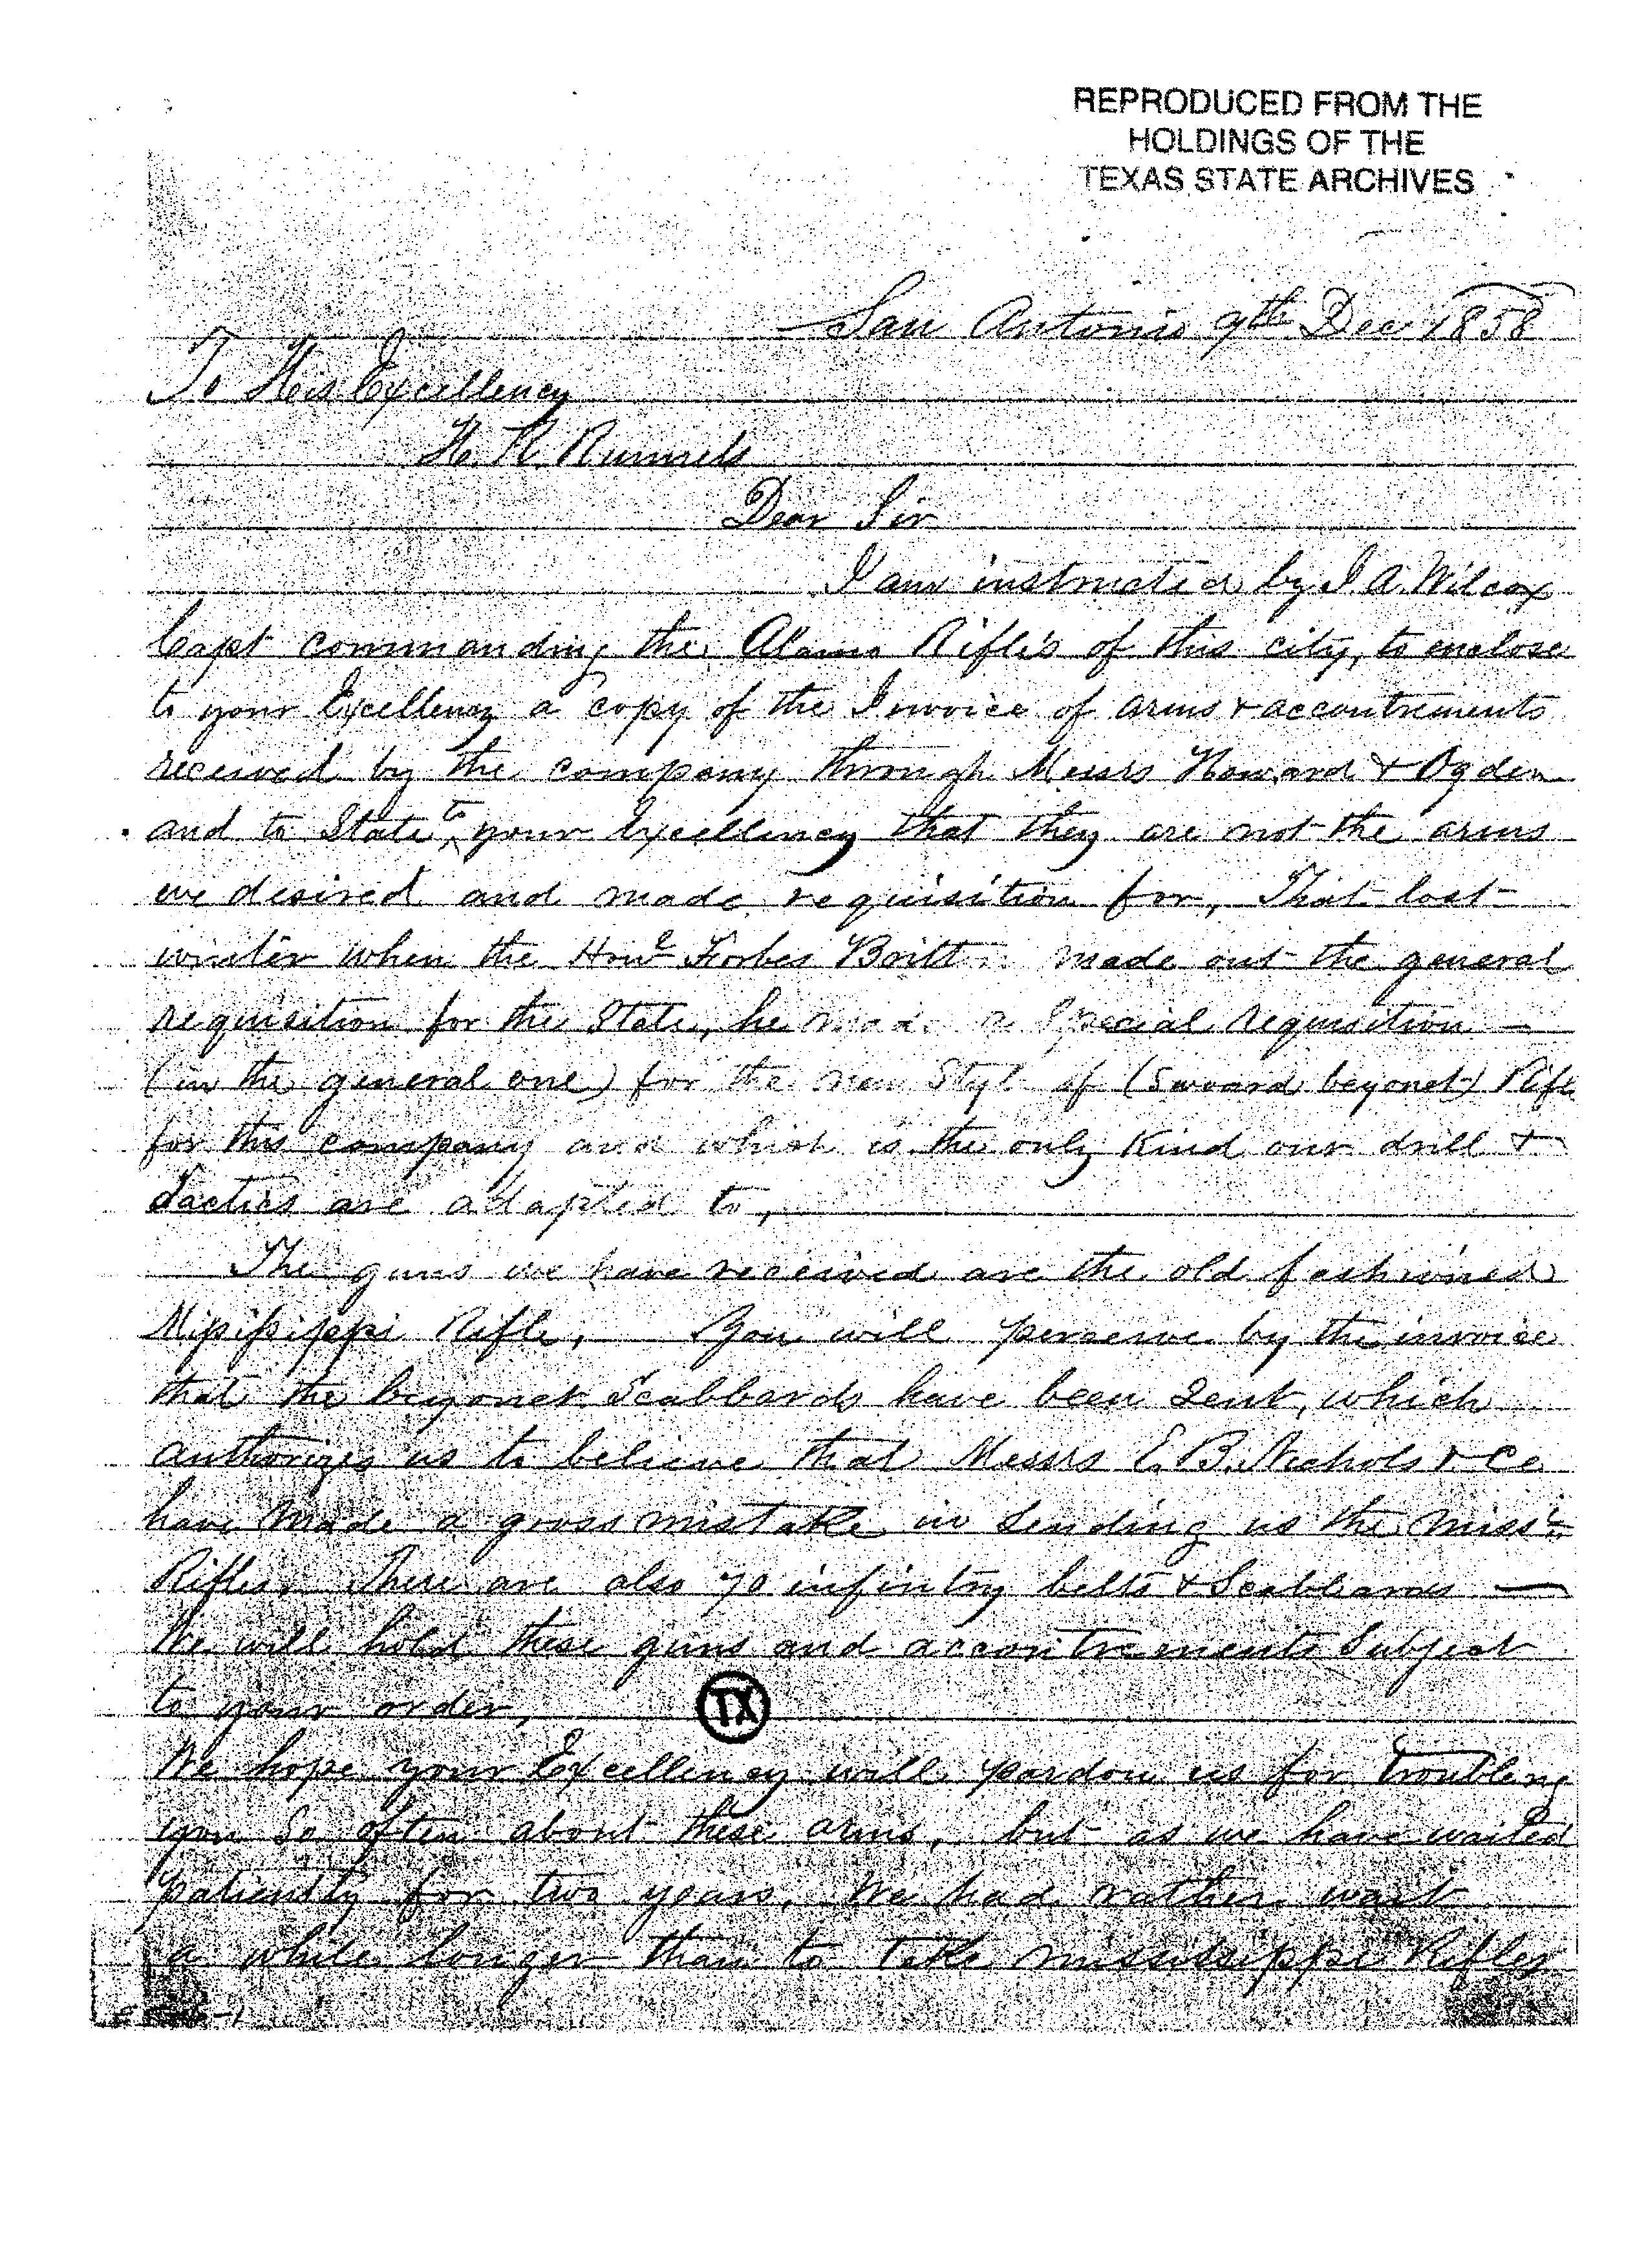 REPRODUCED FROM THE
HOLDINGS OF THE
TEXAS STATE ARCHIVES
San Antonio 9th Dec 1858
To His Excellency
H. R. Runnels
Dear Sir
I am instructed by J. A. Wilcox
Capt commanding the Alamo Rifle's of this city, to enclose
to your Excellency a copy of the Invoice of arms & accoutrements
received by the company through Messrs Howard & Ogden
and to State to your Excellency that they are not the arms
we desired and made requisition for, That last
winter when the Honl Forbes Britton made out the general
requisition for the State, he made a Special requisition —
(in the general one) for the new Style of (Sword beyonet) Rifle
for this company and which is the only Kind our drill &
Tactics are adapted to,
The guns we have received are the old fashioned
Mississippi Rifle, You will perserve by the invoice
that the beyonet Scabbards have been Sent, which
authorizes us to believe that Messrs E. B. Nichols & Co
have made a gross mistake in Sending us the Missi
Rifles. There are also 70 infintry belts & Scabbards —
We will hold these guns and accoutrements Subject
to your order,
TX
We hope your Excellency will pardon us for Troubling
you So often about these arms, but as we have waited
patiently for two years, We had rather wait
a while longer than to take mississippi Rifles